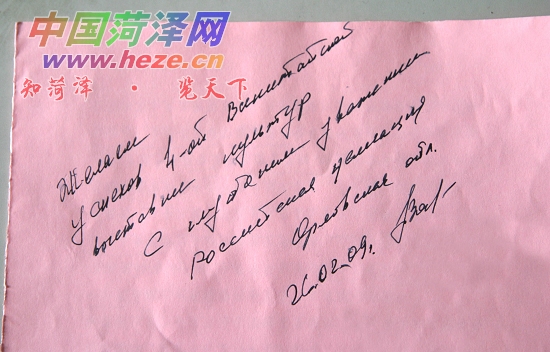 中国菏泽网
www.heze.cn
知菏泽 · 览天下
Желаем
успехов 4-ой Всекитайской
выставки культур
С глубоким уважением
российская делегация
Орловская обл.
26.02.09г.